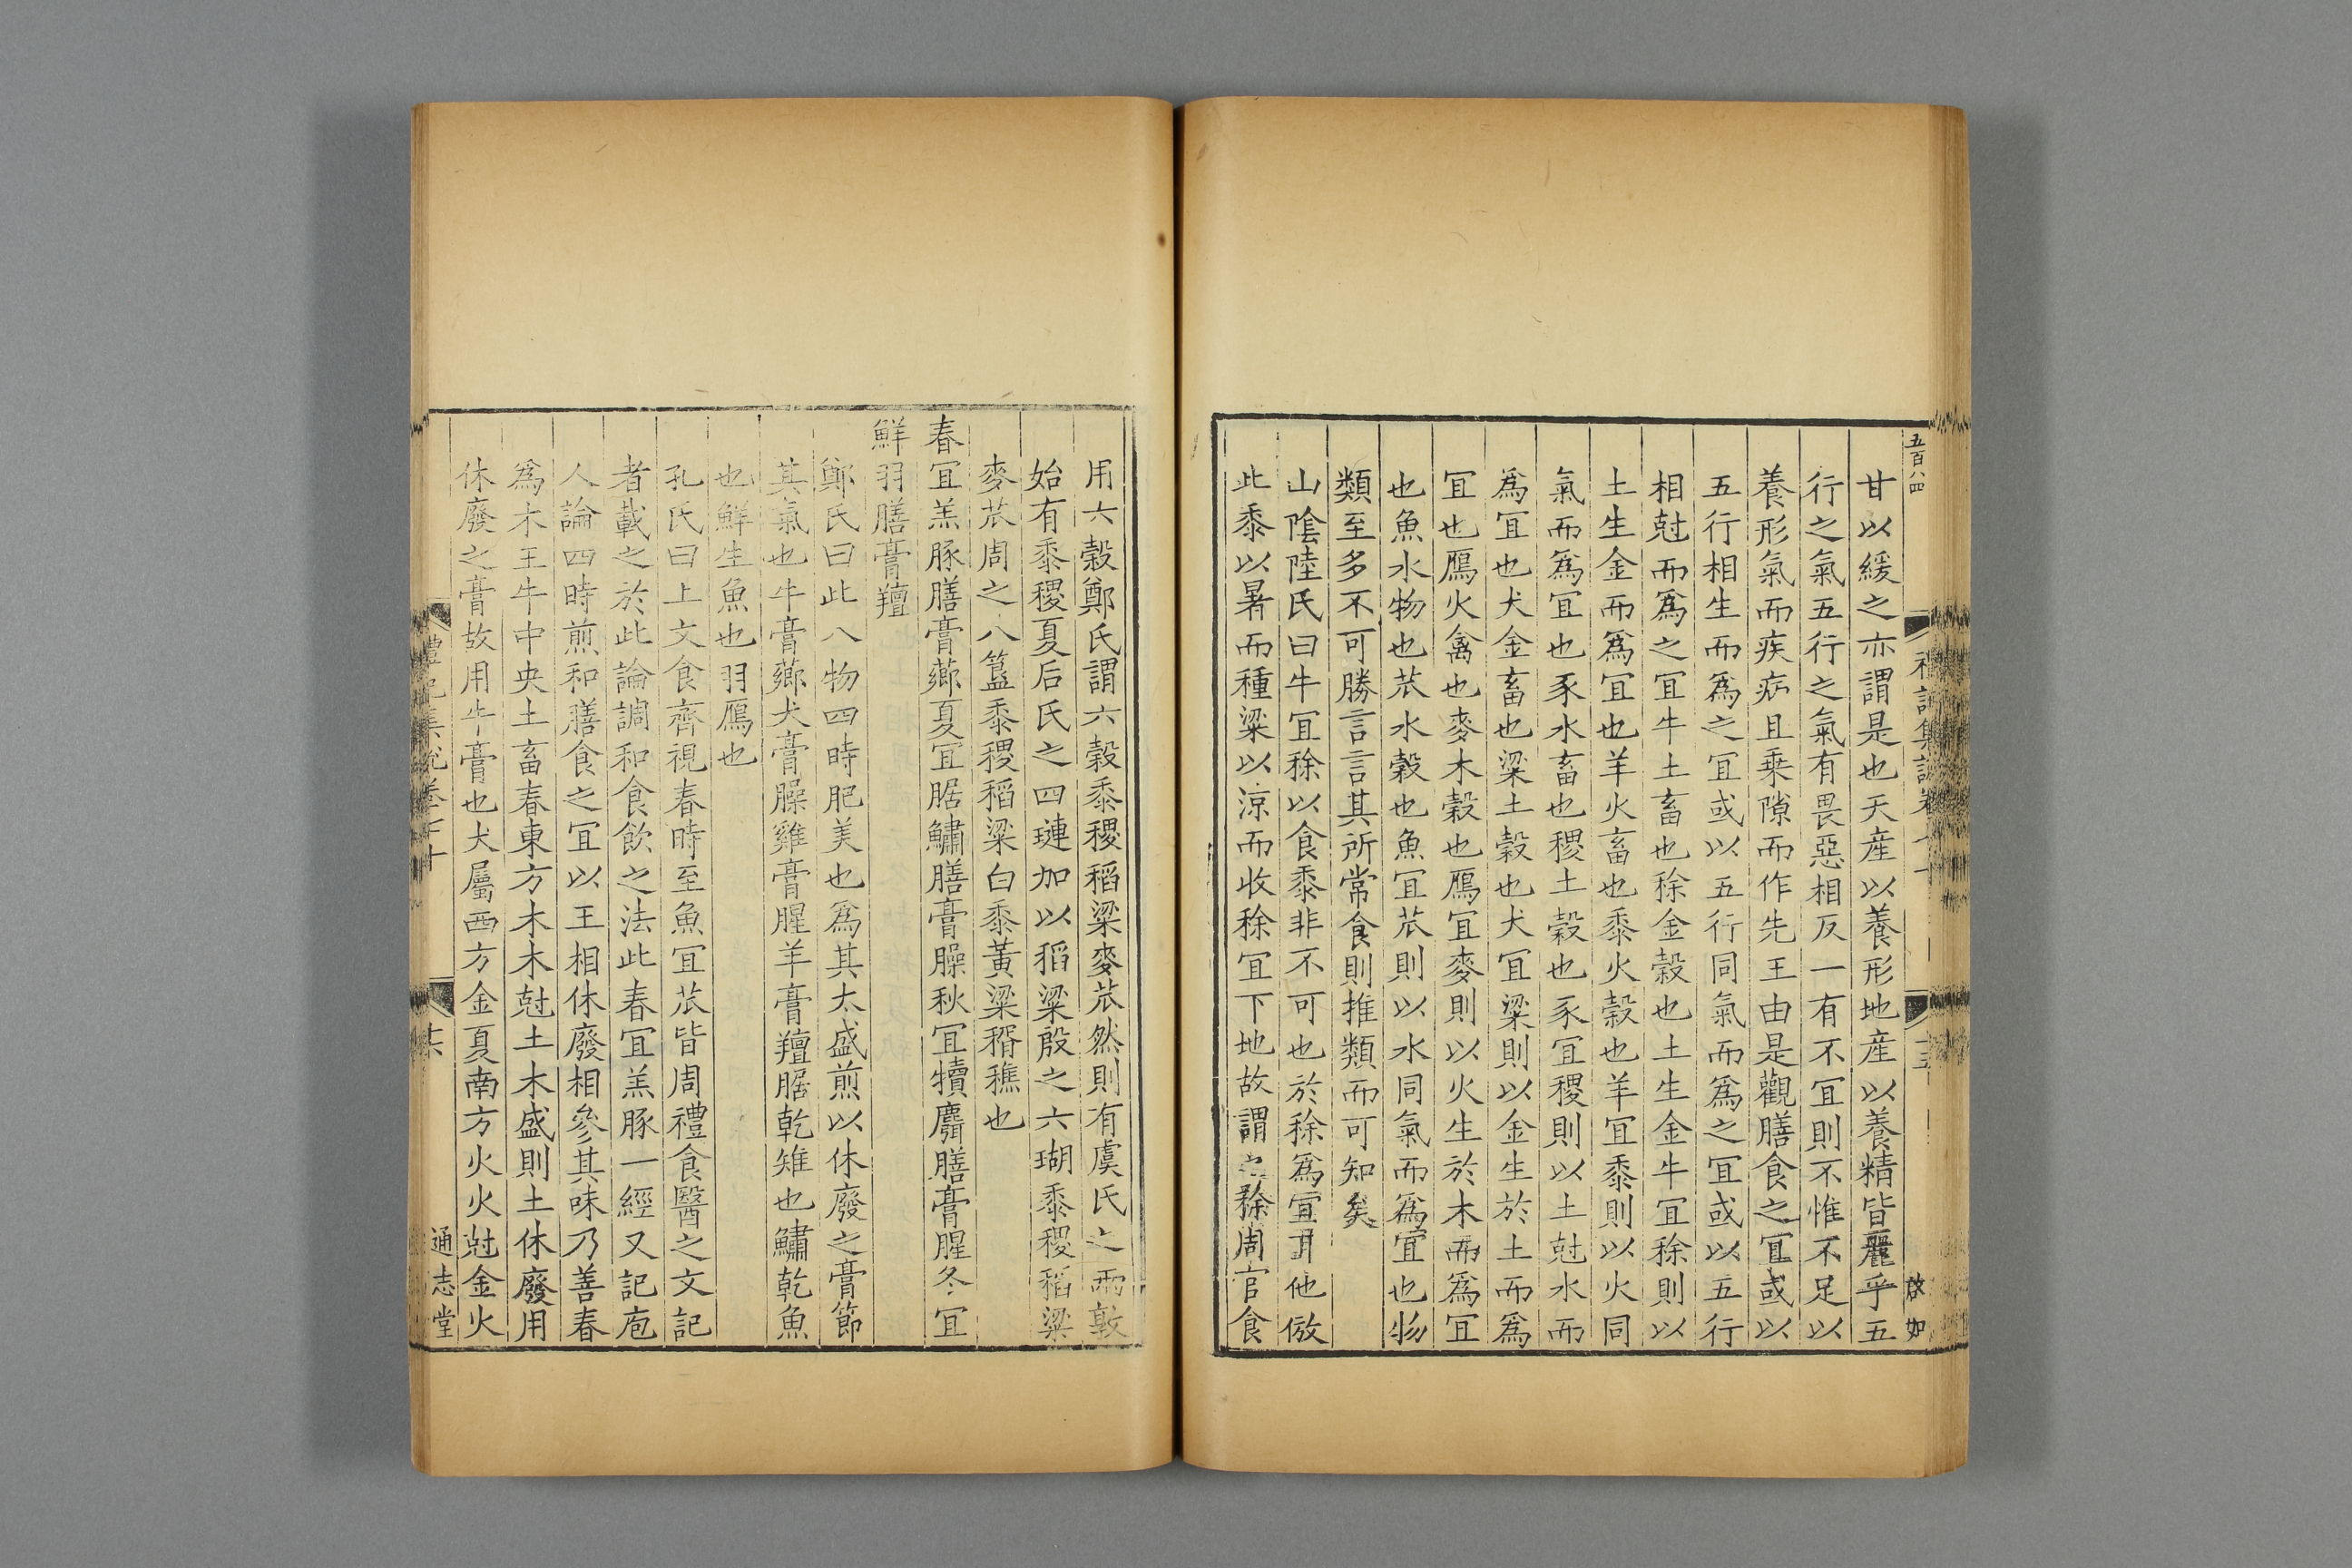 五百八四
甘以緩之亦謂是也天産以養形地産以養精皆麗乎五
行之氣五行之氣有畏惡相反一有不宜則不惟不足以
養形氣而疾疴且乗隙而作先王由是觀膳食之宜或以
五行相生而爲之宜或以五行同氣而爲之宜或以五行
相尅而爲之宜牛土畜也稌金穀也土生金牛宜稌則以
土生金而爲宜也羊火畜也黍火穀也羊宜黍則以火同
氣而爲宜也豕水畜也稷土穀也豕宜稷則以土尅水而
爲宜也犬金畜也粱土穀也犬宜粱則以金生於土而爲
宜也鴈火禽也麥木穀也鴈宜麥則以火生於木而爲宜
也魚水物也苽水穀也魚宜苽則以水同氣而爲宜也物
類至多不可勝言言其所常食則推類而可知矣
山隂陸氏曰牛宜稌以食黍非不可也於稌爲宜耳他倣
此黍以暑而種粱以涼而收稌宜下地故謂之稌周官食
十五
啟如
用六穀鄭氏謂六穀黍稷稻粱麥苽然則有虞氏之兩敦
始有黍稷夏后氏之四璉加以稻粱殷之六瑚黍稷稻粱
麥苽周之八簋黍稷稻粱白黍黃粱稰穛也
春宜羔豚膳膏薌夏宜腒鱐膳膏臊秋宜犢麛膳膏腥冬宜
鮮羽膳膏羶
鄭氏曰此八物四時肥美也爲其太盛煎以休廢之膏節
其氣也牛膏薌犬膏臊雞膏腥羊膏羶腒乾雉也鱐乾魚
也鮮生魚也羽鴈也
孔氏曰上文食齊視春時至魚宜苽皆周禮食醫之文記
者載之於此論調和食飲之法此春宜羔豚一經又記庖
人論四時煎和膳食之宜以王相休廢相參其味乃善春
爲木王牛中央土畜春東方木木尅土木盛則土休廢用
休廢之膏故用牛膏也犬屬西方金夏南方火火尅金火
禮記集說卷七十
十六
通志堂